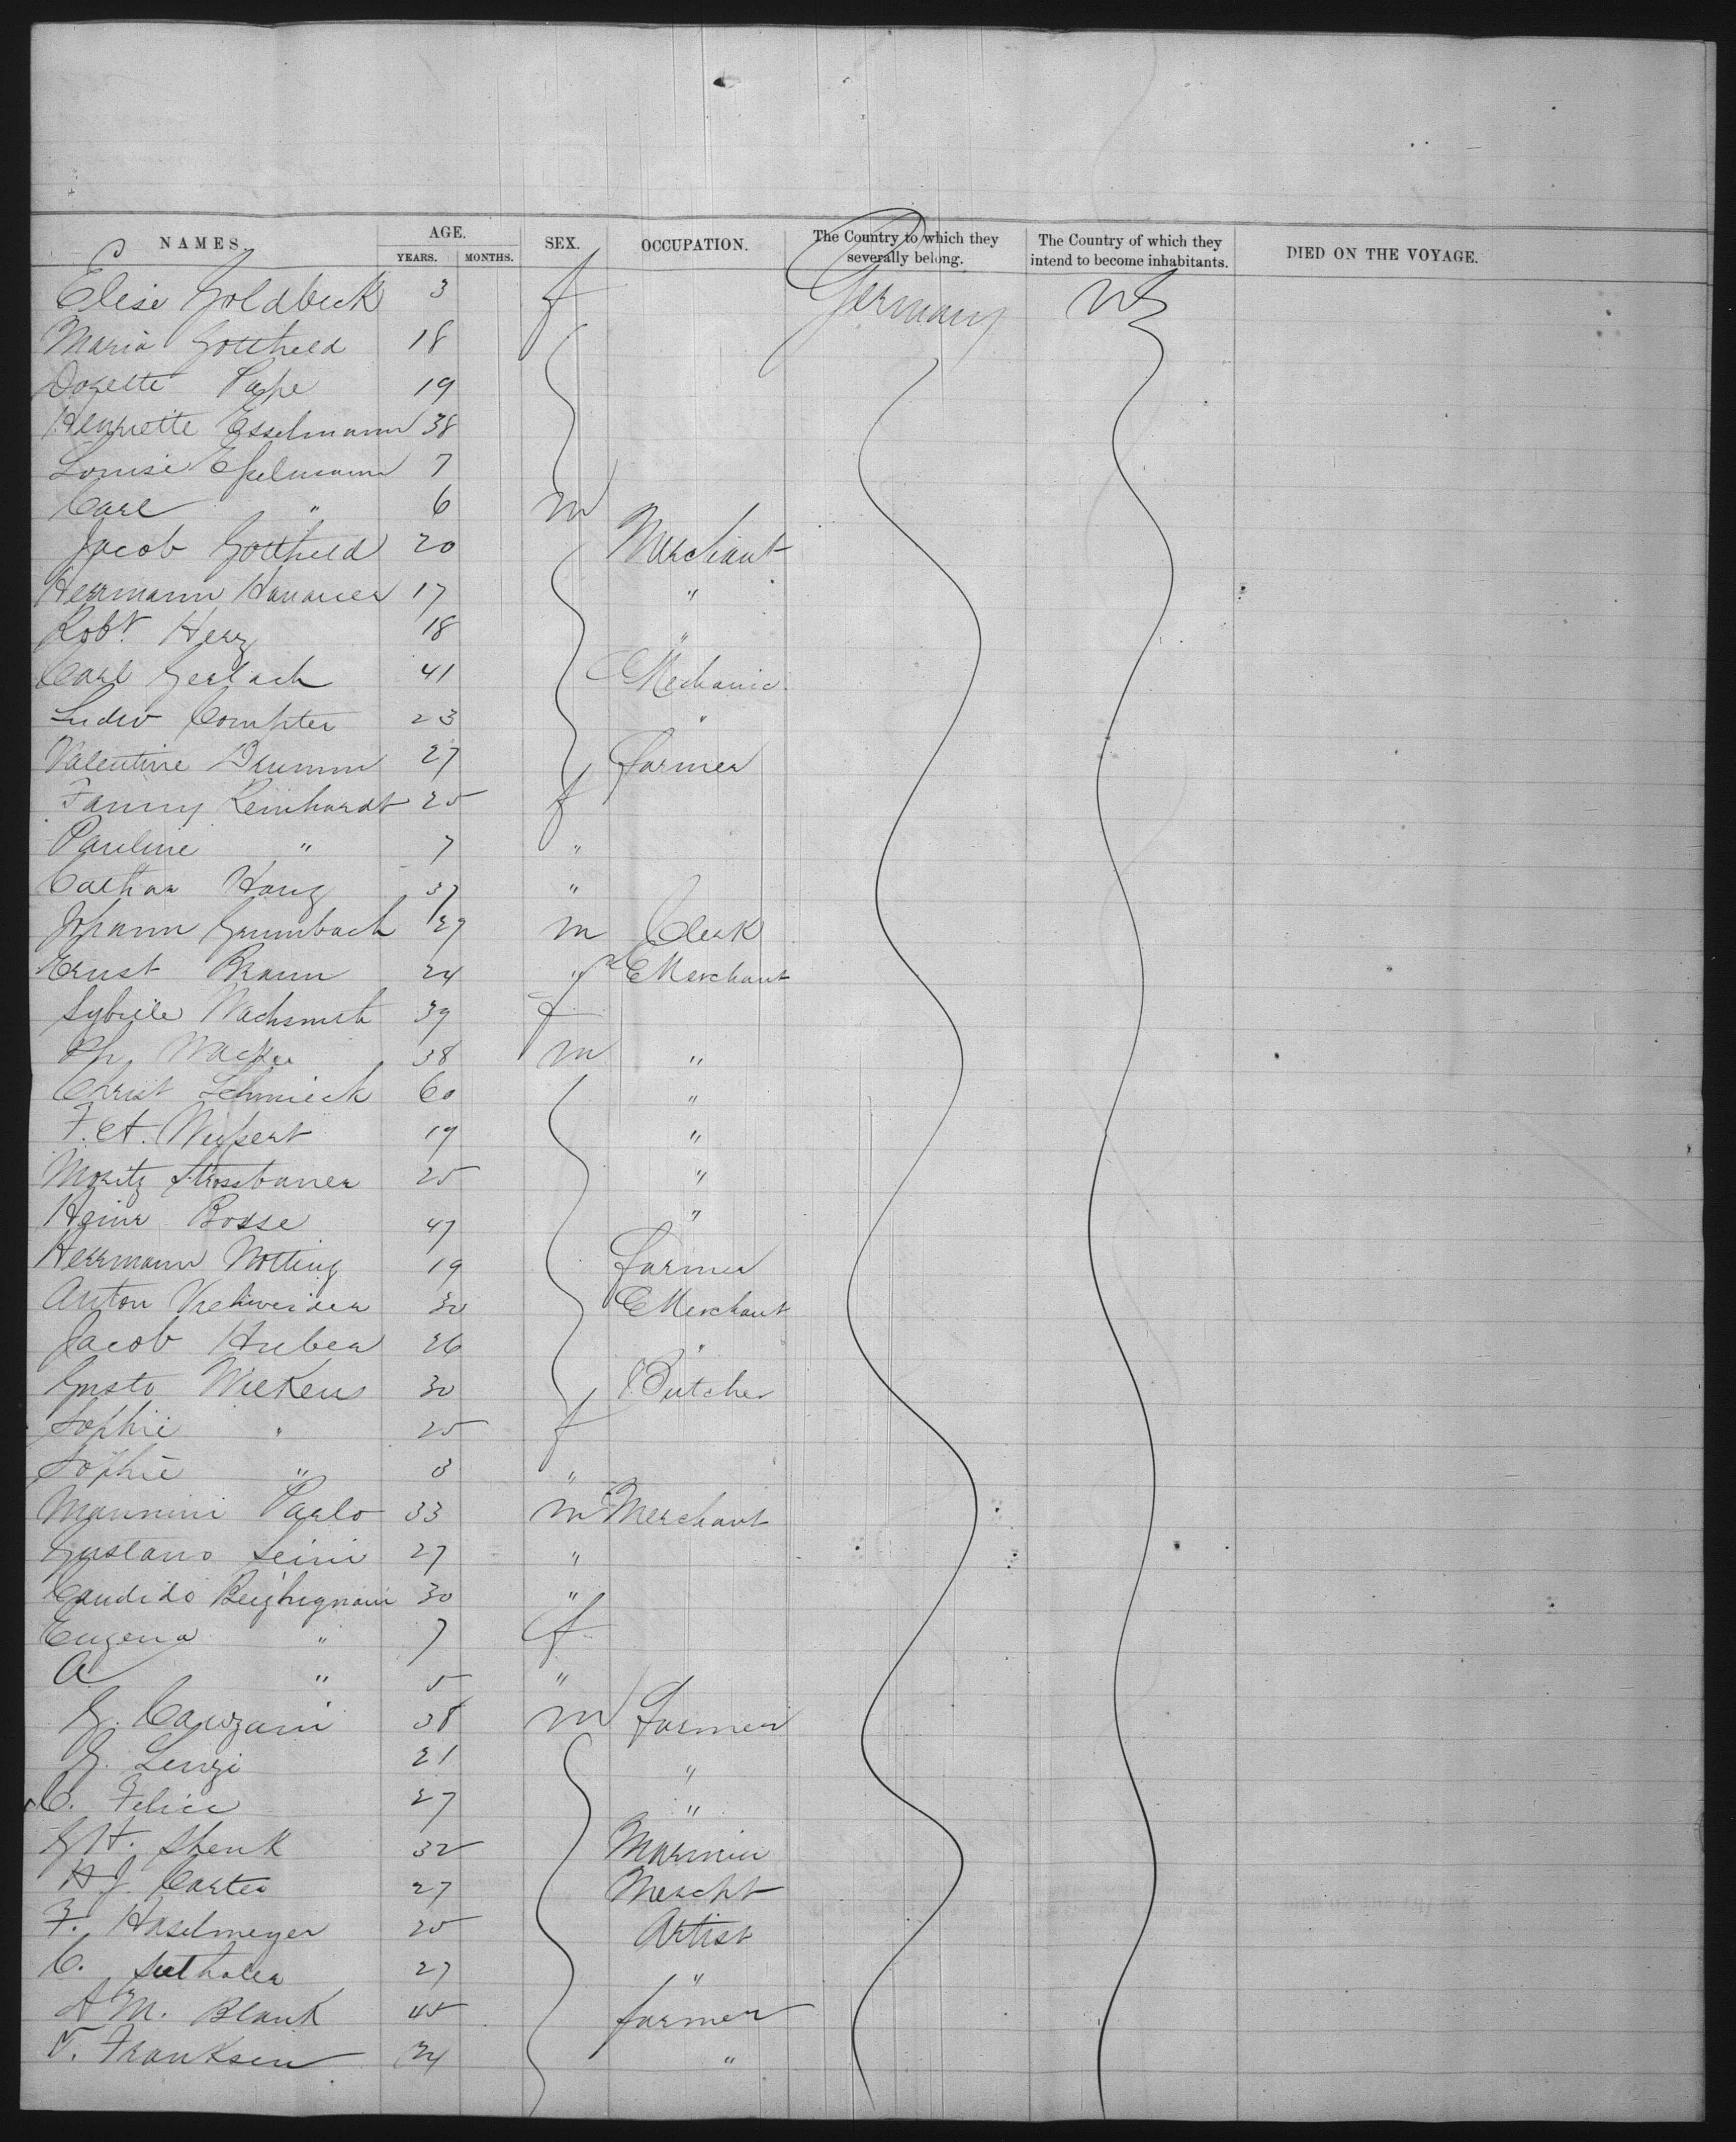 NAMES. AGE. YEARS. MONTHS. SEX. OCCUPATION. The Country to which they severally belong. The Country of which they intend to become inhabitants. DIED ON THE VOYAGE.
Elise Goldbeck 3 f Germany US
Maria Gottheld 18
Dorette Pape 19
Henriette Esselmann 38
Louise Esselmann 7
Carl " 6 m
Jacob Gottheld 20 Merchant
Herrmann Hanauer 17 "
Robt. Herz 18 "
Carl Gerlach 41 Mechanic
Ludw Compter 23 "
Valentine Drumm 27 farmer
Fanny Reinhardt 25 f
Pauline " 7 "
Cathar Haug 37 "
Johann Grumbach 29 m Clerk
Ernst Braun 24 " Merchant
Sybille Wachsmuth 39 f
Ph. 38 m "
Christ Schmieck 60 "
F. A. 19 "
Moritz Strossbauer 25 "
Heinr Bosse 47 "
Herrmann Notting 19 farmer
Anton 30 Merchant
Jacob Huber 26 "
Gust Wilkens 30 Butcher
Sophie " 25 f
Sophie " 3 "
Mannini Paolo 33 m Merchant
27 "
Candido 30 "
Eugena " 7 f
A " 5 "
G. 38 m farmer
G. Lenzi 21 "
C. Felice 27 "
G H. Shenk 32
H. J. Carter 27 Mercht
F. Haselmeyer 25 Artist
C. 27 "
A M. Blank 45 farmer
T. Franksen 24 "